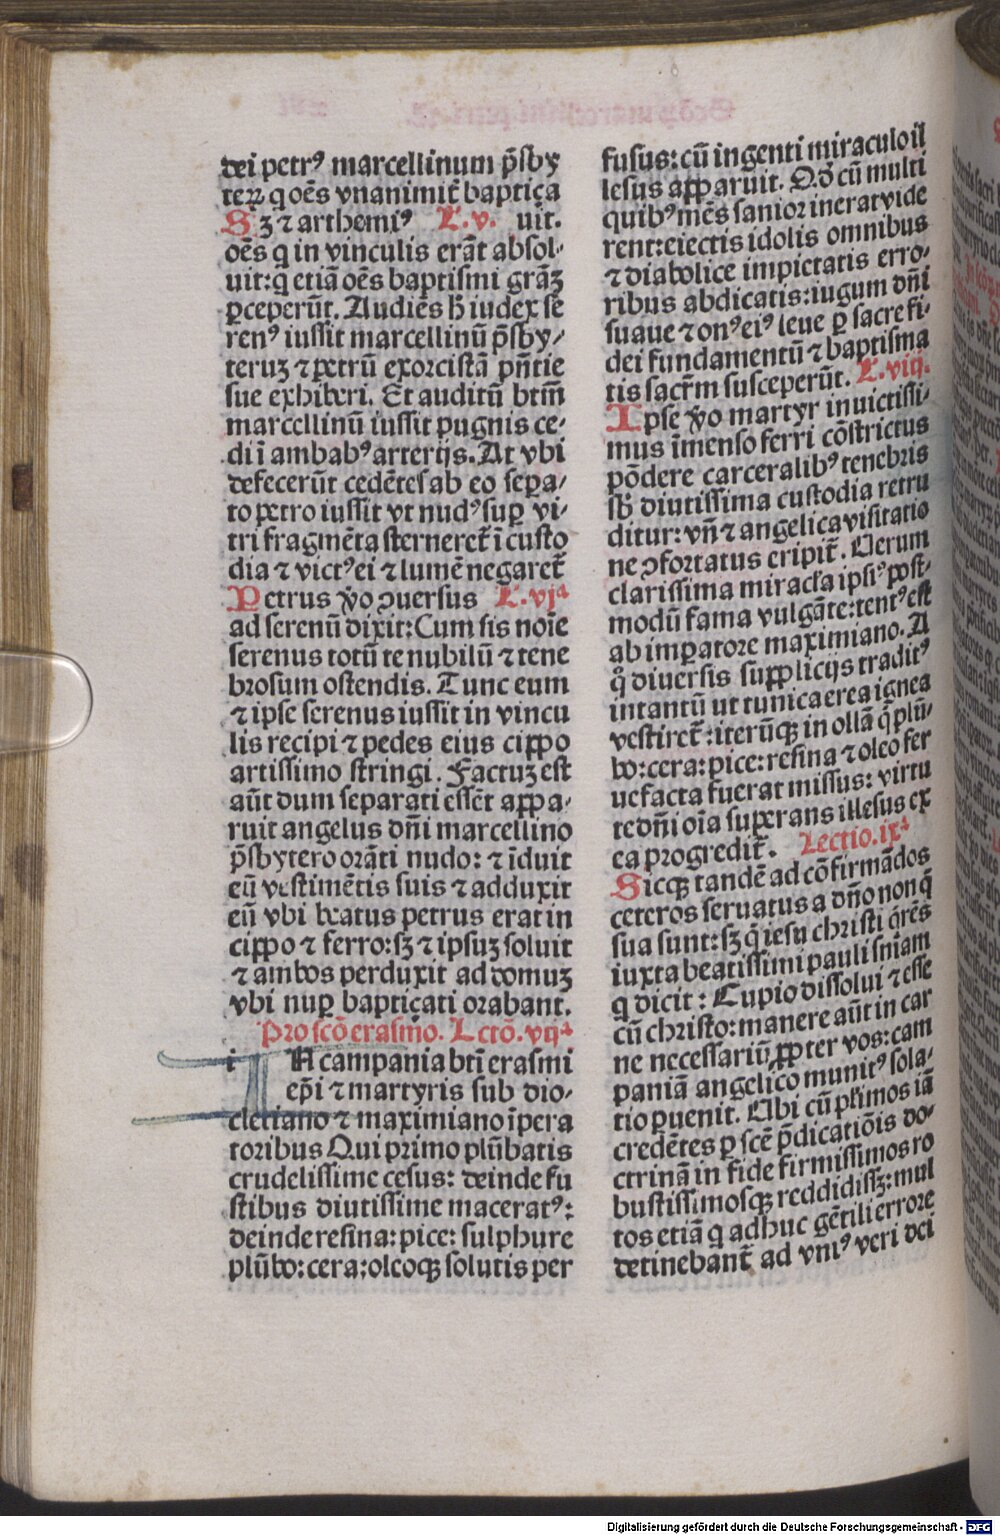 dei petrꝰ marcellinum p̄sby
teꝝ q oēs vnanimit̄ baptiça
Sꝫ ⁊ arthemiꝰ L. v. uit.
oēs q in vinculis erāt absol-
uit: q etiā oēs baptismi grāꝫ
ꝑceperūt. Audiēs h̄ iudex se
renꝰ iussit marcellinū p̄sby-
teruꝫ ⁊ petrū exorcistā pn̄tie
sue exhiberi. Et auditū btm̄
marcellinū iussit pugnis ce-
di ī ambabꝰ arterijs. At vbi
defecerūt cedētes ab eo sepa-
to petro iussit vt nudꝰ suꝑ vi-
tri fragmēta sterneret̄ ī custo
dia ⁊ victꝰ ei ⁊ lumē negaret̄
Petrus v̄o ꝯuersus L. vjᵃ
ad serenū dixit: Cum sis noīe
serenus totū te nubilū ⁊ tene
brosum ostendis. Tunc eum
⁊ ipse serenus iussit in vincu
lis recipi ⁊ pedes eius cippo
artissimo stringi. Factuꝫ est
aūt dum separati essēt appa-
ruit angelus dn̄i marcellino
p̄sbytero orāti nudo: ⁊ īduit
eū vestimētis suis ⁊ adduxit
eū vbi beatus petrus erat in
cippo ⁊ ferro: sꝫ ⁊ ipsuꝫ soluit
⁊ ambos perduxit ad domuꝫ
vbi nuꝑ baptiçati orabant.
Pro scō erasmo. Lctō. vijᵃ
i N campania btī erasmi
ep̄i ⁊ martyris sub dio-
cletiano ⁊ maximiano īpera
toribus Qui primo plūbatis
crudelissime cesus: deinde fu
stibus diutissime maceratꝰ:
deinde resina: pice: sulphure
plūbo: cera: oleoqꝫ solutis per
fusus: cū ingenti miraculo il
lesus apparuit. Qd̄ cū multi
quibꝰ mēs sanior inerat vide
rent: eiectis idolis omnibus
⁊ diabolice impietatis erro-
ribus abdicatis: iugum dn̄i
suaue ⁊ onꝰ eiꝰ leue ꝑ sacre fi-
dei fundamentū ⁊ baptisma
tis sacr̄m susceperūt. L. viij.
Ipse v̄o martyr inuictissi-
mus īmenso ferri cōstrictus
pōdere carceralibꝰ tenebris
sb̄ diutissima custodia retru
ditur: vn̄ ⁊ angelica visitatio
ne ꝯfortatus eripit̄. Uerum
clarissima miracl̄a ipsiꝰ post-
modū fama vulgāte: tentꝰ est
ab imꝑatore maximiano. A
q̊ diuersis supplicijs traditꝰ
intantū ut tunica erea ignea
vestiret̄: iterūqꝫ in ollā q̄ plū-
bo: cera: pice: resina ⁊ oleo fer
uefacta fuerat missus: virtu
te dn̄i oīa superans illesus ex
ea progredit̄. Lectio. ixᵃ
Sicqꝫ tandē ad cōfirmādos
ceteros seruatus a dn̄o non q̄
sua sunt: sꝫ q̄ iesu christi q̄rēs
iuxta beatissimi pauli sn̄iam
q dicit: Cupio dissolui ⁊ esse
cū christo: manere aūt in car
ne necessariū ꝓpter vos: cam
paniā angelico munitꝰ sola-
tio ꝑuenit. Ubi cū pl̄imos iā
credētes ꝑ scē p̄dicatiōis do-
ctrinā in fide firmissimos ro
bustissimosqꝫ reddidissꝫ: mul
tos etiā q adhuc gētili errore
detinebant̄ ad vniꝰ veri dei
Digitalisierung gefördert durch die Deutsche Forschungsgemeinschaft - DFG